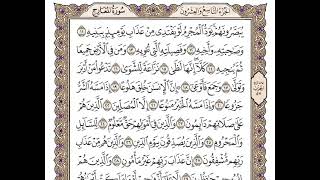 الجزء التاسع والعشرون سورة المعارج
يُبَصَّرُونَهُمْ يَوَدُّ ٱلْمُجْرِمُ لَوْ يَفْتَدِى مِنْ عَذَابِ يَوْمِئِذٍۭ بِبَنِيهِ ١١
وَصَٰحِبَتِهِۦ وَأَخِيهِ ١٢ وَفَصِيلَتِهِ ٱلَّتِى تُـْٔوِيهِ ١٣ وَمَن فِى ٱلْأَرْضِ جَمِيعًا
ثُمَّ يُنجِيهِ ١٤ كَلَّآ إِنَّهَا لَظَىٰ ١٥ نَزَّاعَةً لِّلشَّوَىٰ ١٦ تَدْعُوا۟ مَنْ أَدْبَرَ
وَتَوَلَّىٰ ١٧ وَجَمَعَ فَأَوْعَىٰٓ ١٨ ۞ إِنَّ ٱلْإِنسَٰنَ خُلِقَ هَلُوعًا ١٩ إِذَا مَسَّهُ ٱلشَّرُّ
جَزُوعًا ٢٠ وَإِذَا مَسَّهُ ٱلْخَيْرُ مَنُوعًا ٢١ إِلَّا ٱلْمُصَلِّينَ ٢٢ ٱلَّذِينَ هُمْ
عَلَىٰ صَلَاتِهِمْ دَآئِمُونَ ٢٣ وَٱلَّذِينَ فِىٓ أَمْوَٰلِهِمْ حَقٌّ مَّعْلُومٌ ٢٤ لِّلسَّآئِلِ
وَٱلْمَحْرُومِ ٢٥ وَٱلَّذِينَ يُصَدِّقُونَ بِيَوْمِ ٱلدِّينِ ٢٦ وَٱلَّذِينَ هُم مِّنْ عَذَابِ
رَبِّهِم مُّشْفِقُونَ ٢٧ إِنَّ عَذَابَ رَبِّهِمْ غَيْرُ مَأْمُونٍ ٢٨ وَٱلَّذِينَ هُمْ